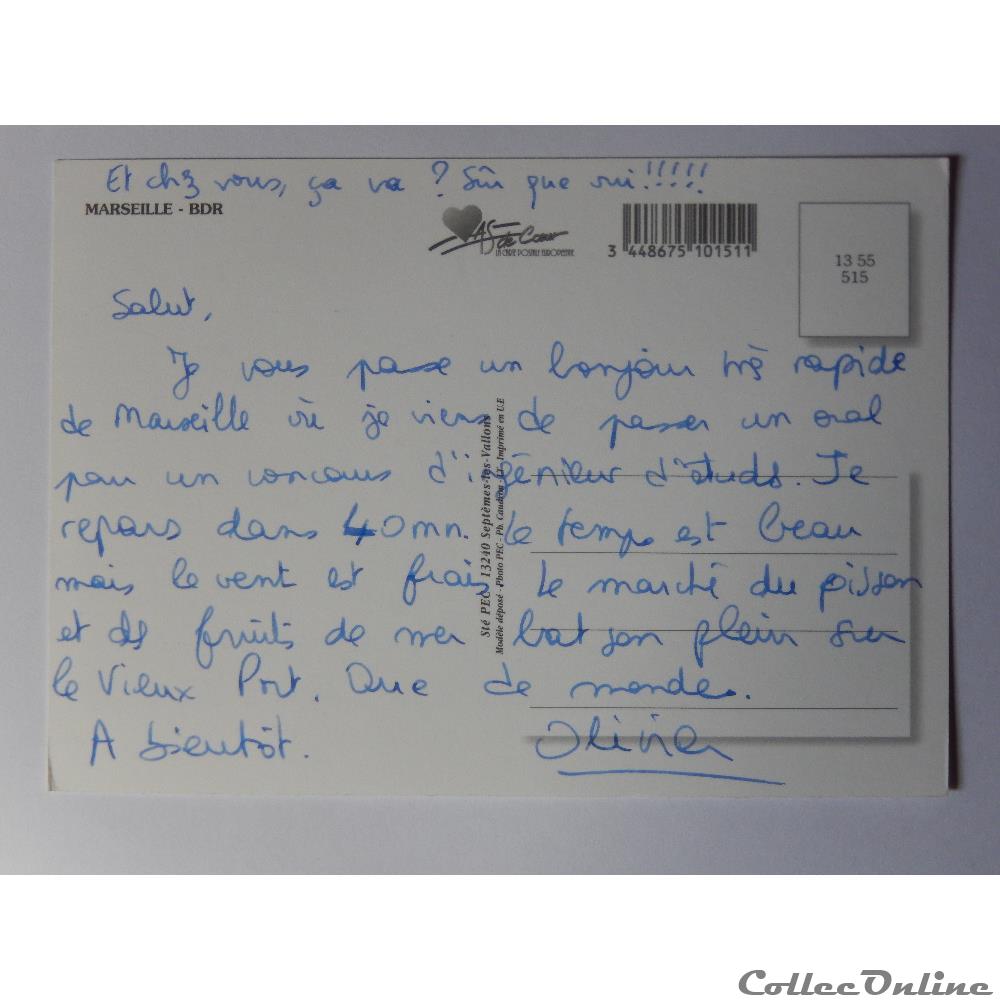 Et chez vous, ça va ? Sûr que oui !!!!!
MARSEILLE - BDR
AS de Cœur
LA CARTE POSTALE EUROPEENNE
3 448675 101511
13 55
515
Salut,
Je vous passe un bonjour très rapide
de Marseille où je viens de passer un oral
pour un concours d'ingénieur d'études. Je
repars dans 40mn. Le temps est beau
mais le vent est frais. Le marché du poisson
et des fruits de mer bat son plein sur
le Vieux Port. Que de monde.
A bientôt.
Olivier
Sté PEC 13240 Septèmes-les-Vallons
Modèle déposé - Photo PEC - Ph. Caudron - Imprimé en U.E
CollecOnline